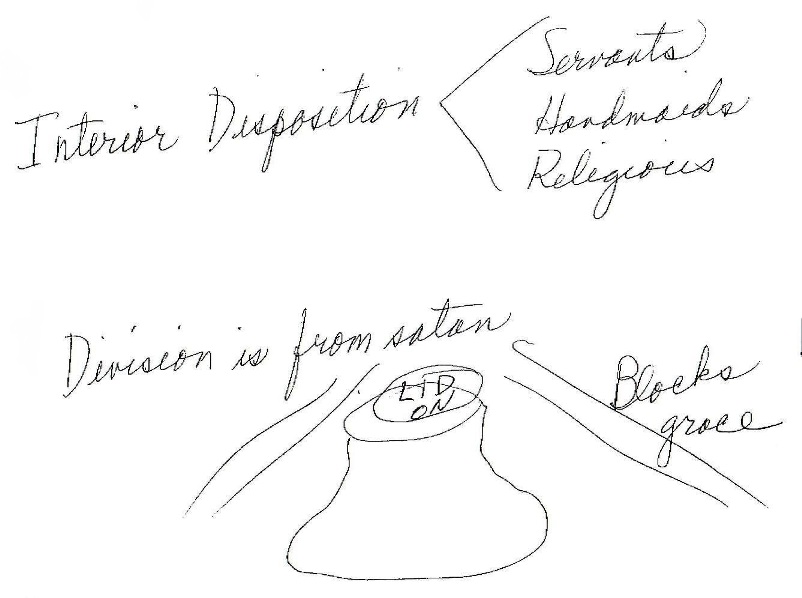 Interior Disposition
Servants
Handmaids
Religious
Division is from satan
LID
ON
Blocks
grace